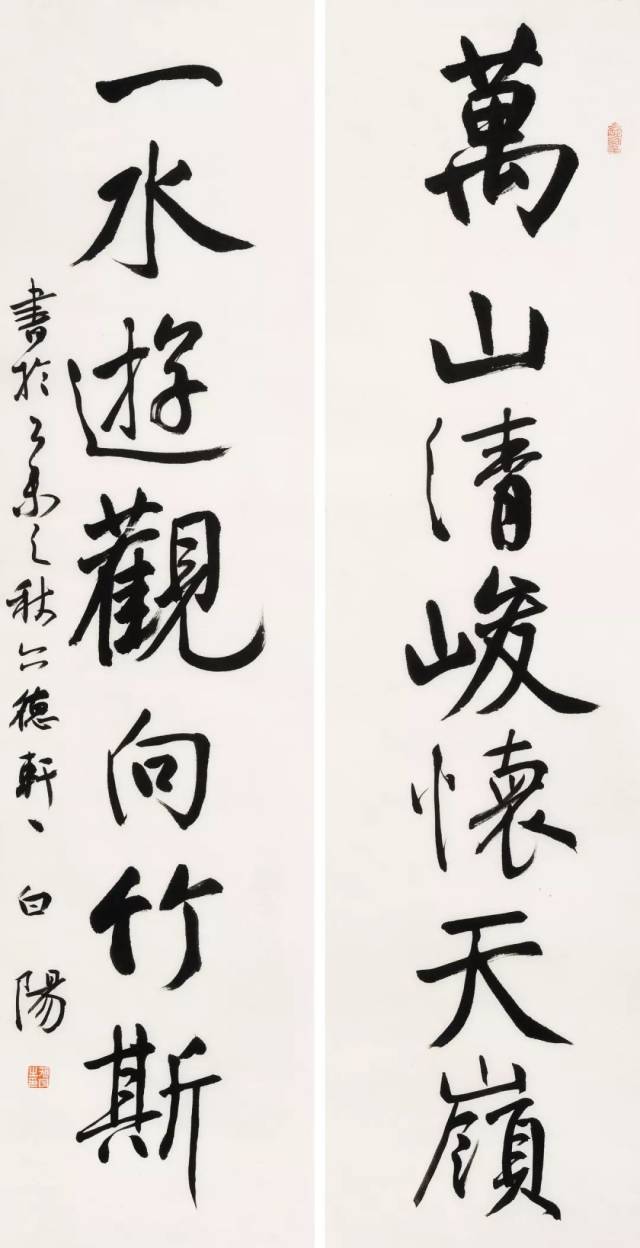 萬山清峻懷天嶺
一水遊觀向竹斯
書於乙未之秋六德軒、白陽